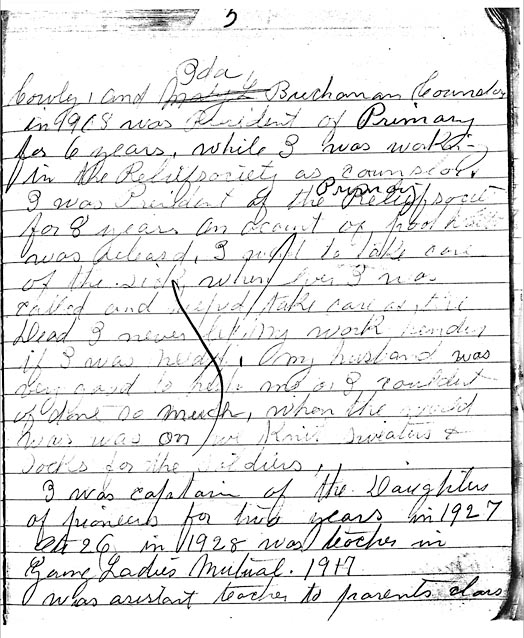 5
Ida,
Cowley, and Mary L Buchanan Counslor
in 1918 was President of Primary
for 6 years, while I was workin
in the Relief society as counslor.
Primary
I was President of the Relief society
for 8 years on acount of poor helth
was released, I went to take care
of the sick when ever I was
called and helped take care of the
Dead I never let my work hender
if I was needed, my husband was
very good to help me or I couldent
of done so much, when the world
wars was on we Knit Sweaters &
Socks for the Soldiers,
I was captain of the Daughters
of pioneers for two years in 1927
26 in 1928 was teacher in
Young Ladies Mutual. 1917
was asistant teacher to parents class